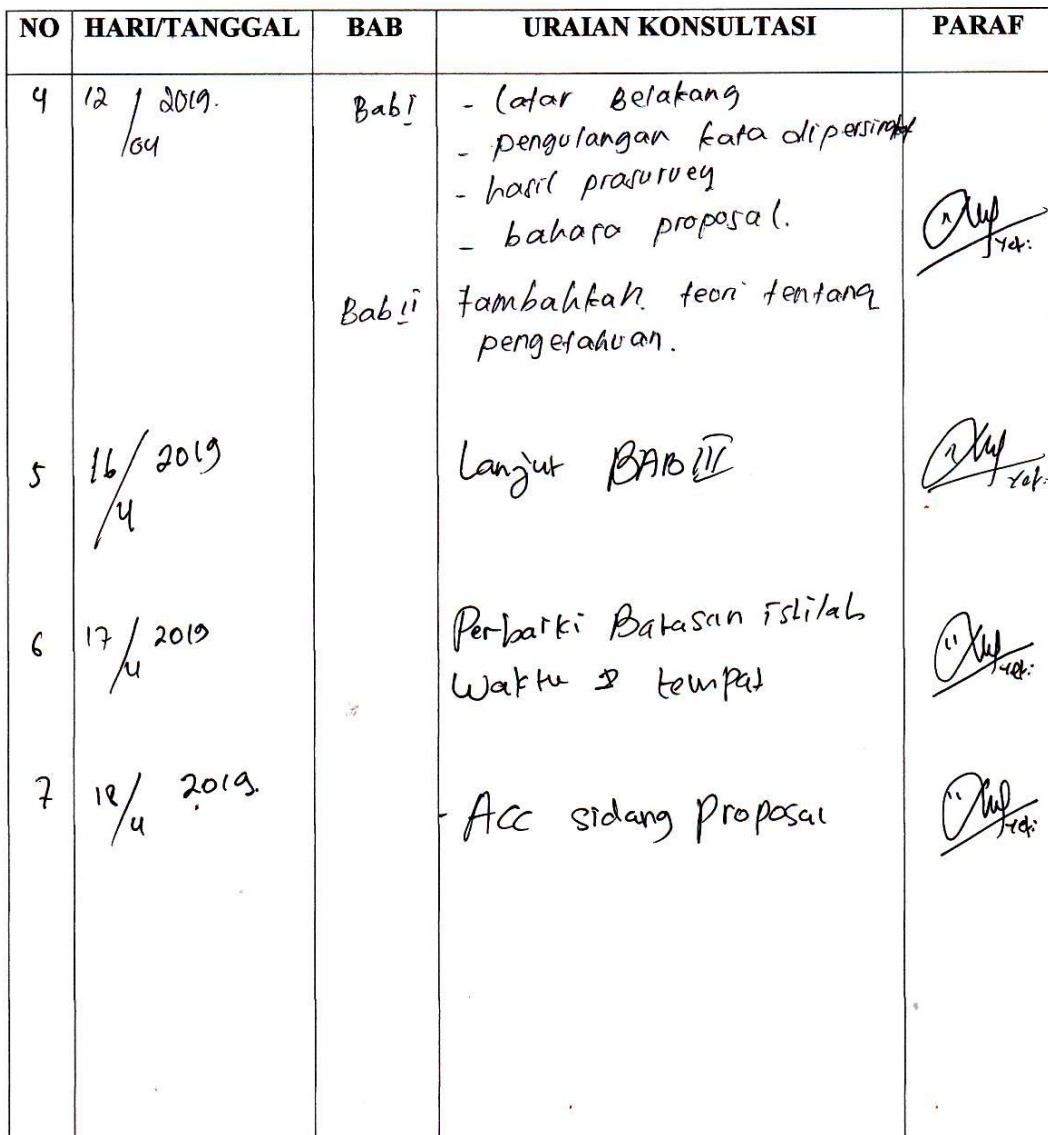 NO HARI/TANGGAL BAB URAIAN KONSULTASI PARAF
4 12/04 2019. Bab I - latar Belakang
- pengulangan kata dipersingkat
- hasil prasurvey
- bahasa proposal.
Yeti
Bab II tambahkan teori tentang
pengetahuan.
5 16/4 2019 Lanjut BAB III
Yeti
6 17/4 2019 Perbaiki Batasan istilah
Waktu & tempat
Yeti
7 18/4 2019. - Acc sidang Proposal
Yeti